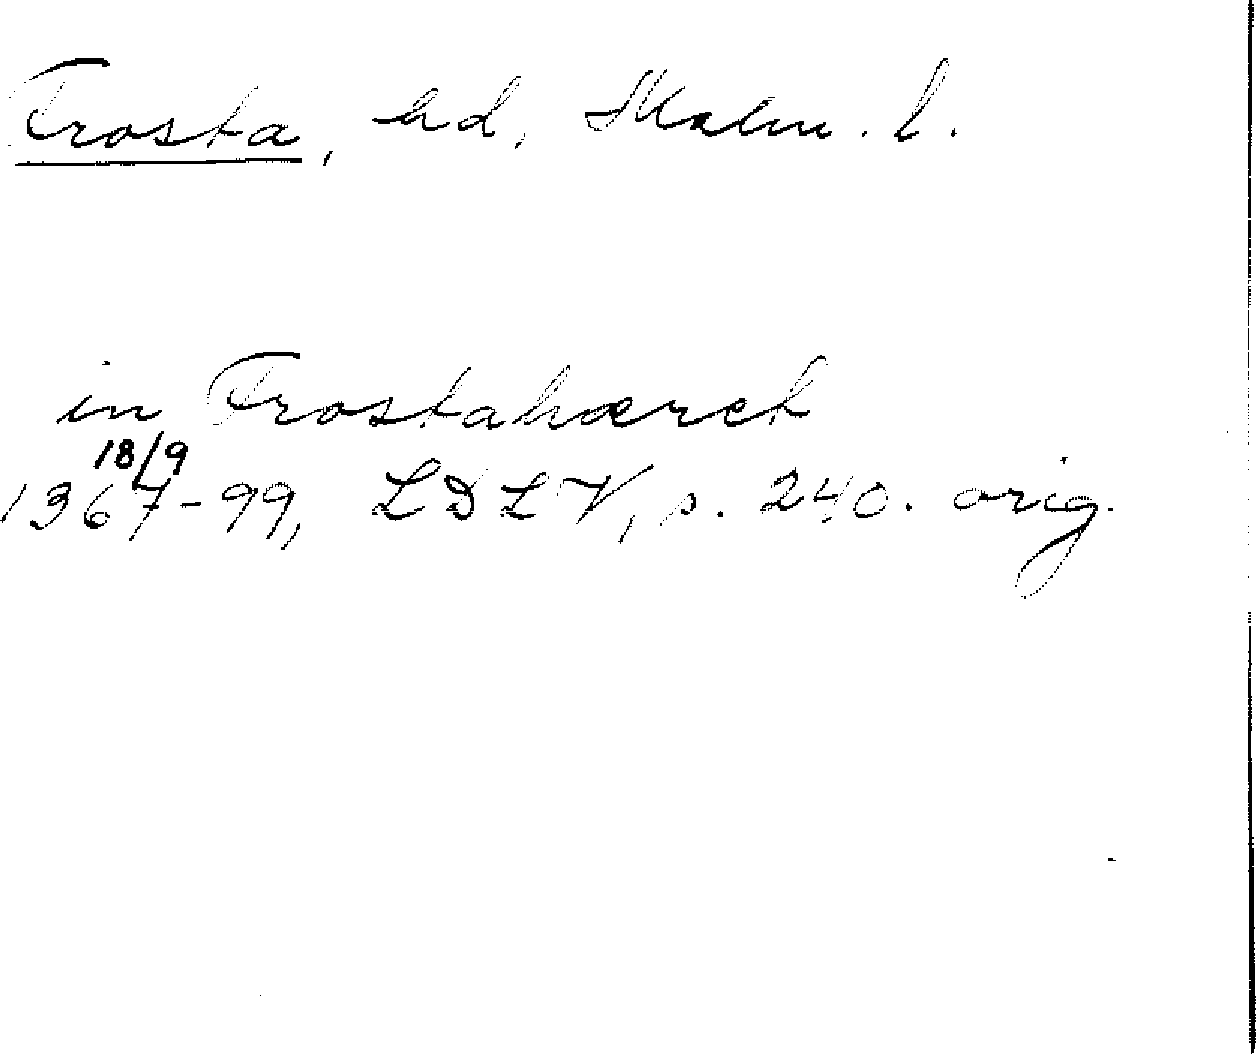 Frosta, hd, Malm. l.
in Frostahæret
18/9
1367-99, LDLV, s. 240. orig.